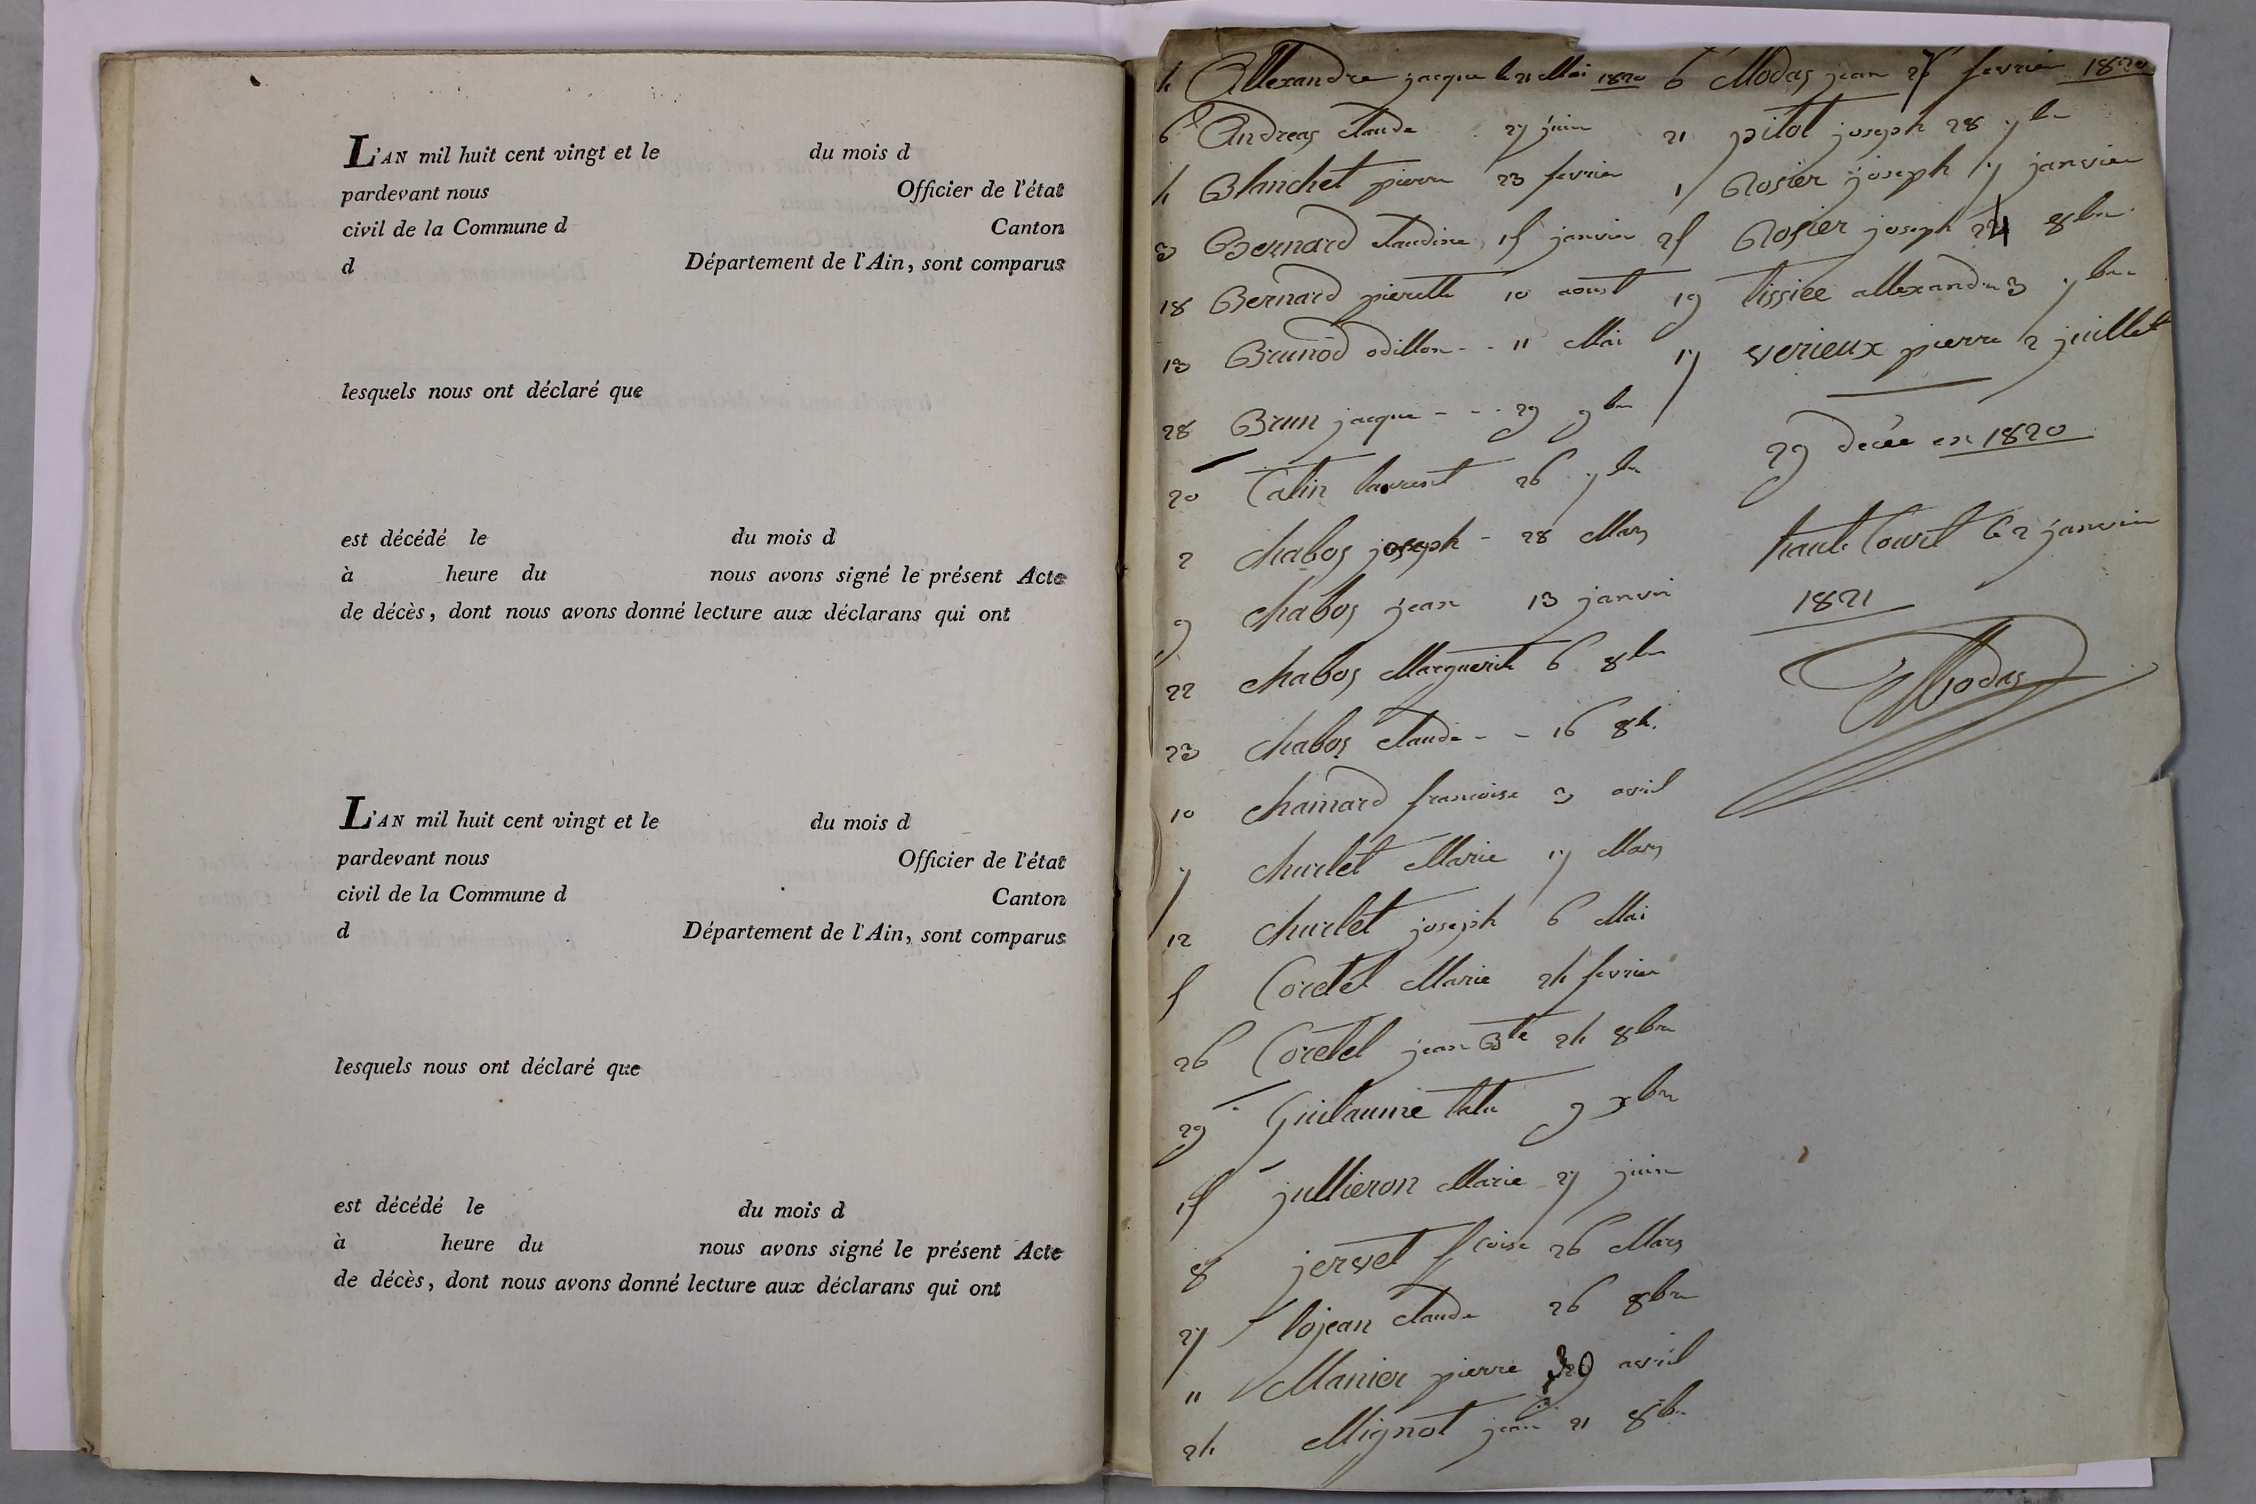 L'AN mil huit cent vingt et le du mois d
pardevant nous Officier de l'état
civil de la Commune d Canton
d Département de l'Ain, sont comparus
lesquels nous ont déclaré que
est décédé le du mois d
à heure du nous avons signé le présent Acte
de décès, dont nous avons donné lecture aux déclarans qui ont
L'AN mil huit cent vingt et le du mois d
pardevant nous Officier de l'état
civil de la Commune d Canton
d Département de l'Ain, sont comparus
lesquels nous ont déclaré que
est décédé le du mois d
à heure du nous avons signé le présent Acte
de décès, dont nous avons donné lecture aux déclarans qui ont
Allexandre jacque le 21 Mai 1820
Andreas Claude 27 juin
4 Blanchet pierre 23 fevrier
3 Bernard claudine 15 janvier
18 Bernard pierrette 10 aoust
13 Brunod odillon - - 11 Mai
28 Brun jacque - - - 29 9bre
20 Catin laurent 26 7bre
2 chabos joseph - 28 Mars
9 chabos jean 13 janvier
22 chabos Marguerite 6 8bre
23 chabos claude - - 16 8b.
10 chainard francoise 3 avril
7 churlet Marie 17 Mars
12 churlet joseph 6 Mai
5 Coretel Marie 24 fevrier
26 Coretel jean Bte 24 8bre
29 Guilaume 9 xbre
15 jullieron Marie 27 juin
8 jervet fcoise 26 Mars
27 lojean claude 26 8bre
11 Manier pierre avril
24 Mignot jean 21 8bre
6 Modas jean 26 fevrier 1820
21 pitot joseph 28 7bre
1 Rosier joseph 7 janvier
25 Rosier joseph 24 8bre
19 tissiee allexandre 3 7bre
17 verieux pierre 2 juillet
29 decée en 1820
haute Court le 2 janvier
1821
Modas